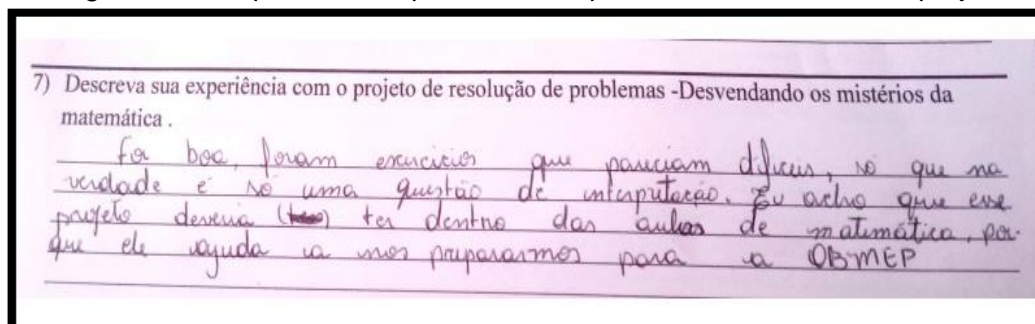 7) Descreva sua experiência com o projeto de resolução de problemas -Desvendando os mistérios da
matemática .
foi boa, foram exercícios que pareciam difíceis, só que na
verdade é só uma questão de interpretação. Eu acho que esse
projeto deveria () ter dentro das aulas de matemática, por-
que ele ajuda a nos prepararmos para a OBMEP